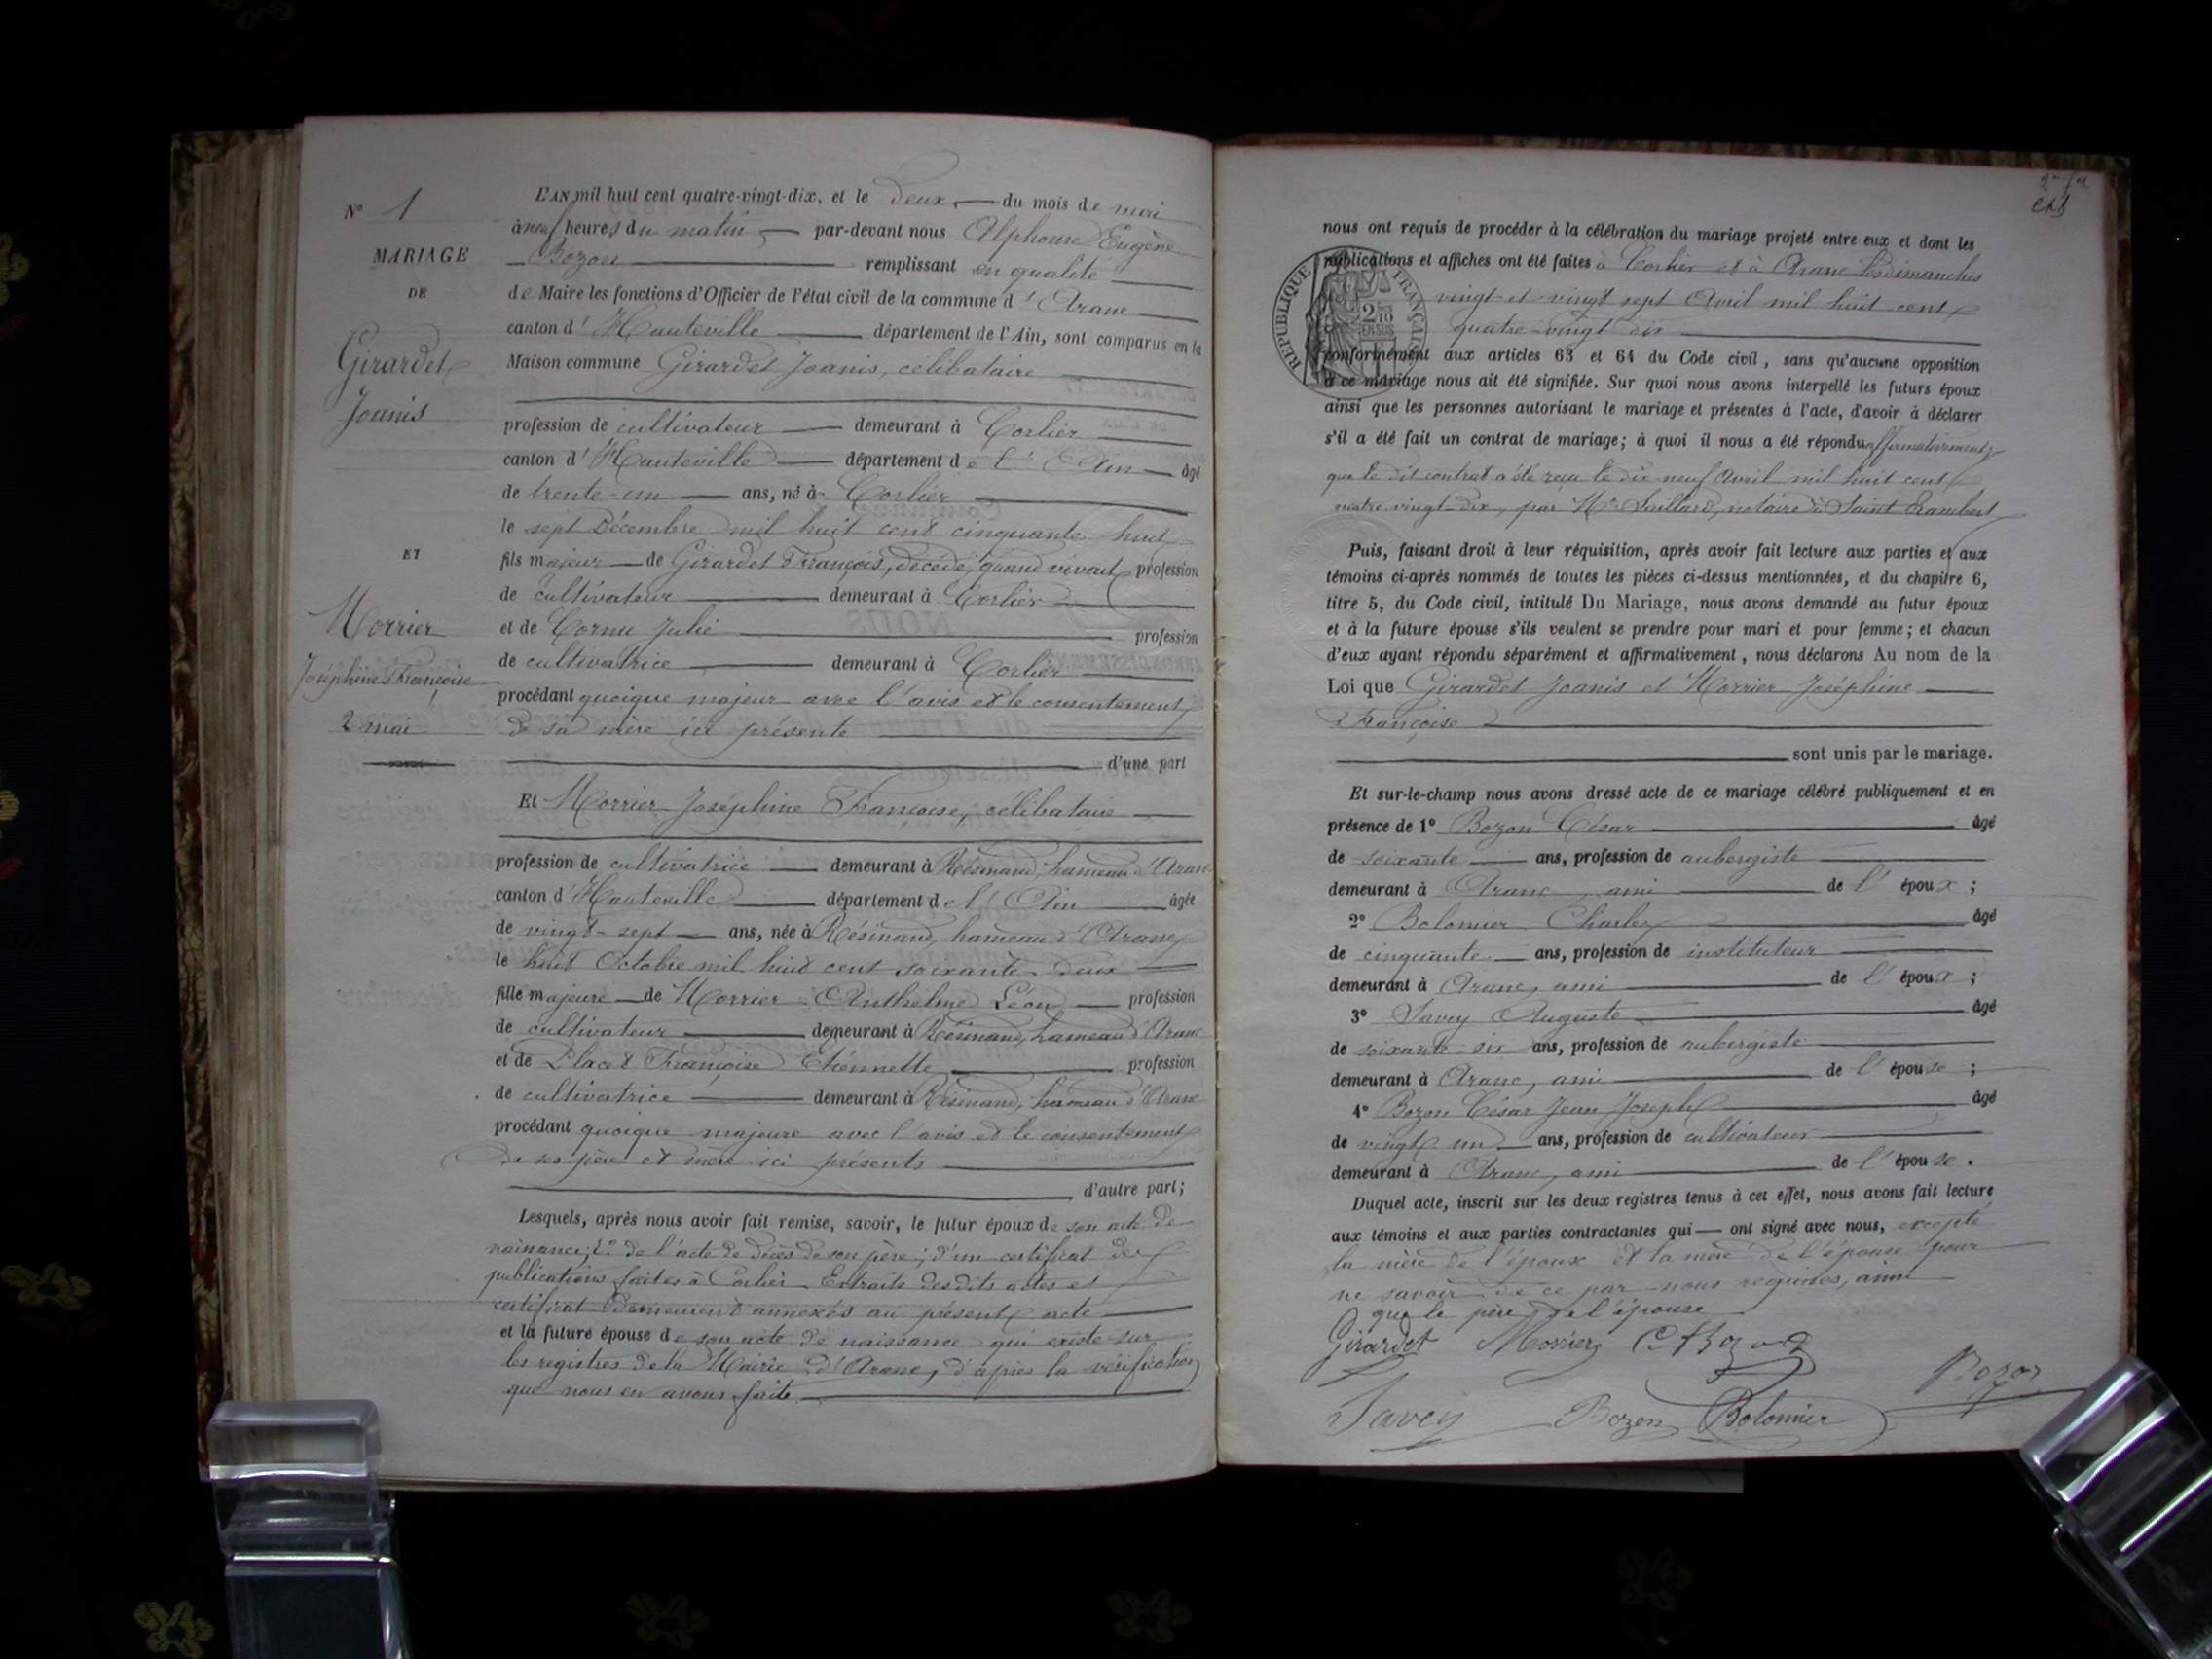 N° 1
MARIAGE
DE
Girardet
Joanis
ET
Morrier
Joséphine Françoise
2 mai
L'AN mil huit cent quatre-vingt-dix, et le deux du mois de mai
à neuf heures du matin par-devant nous Alphonse Eugène
Bozon remplissant en qualité
de Maire les fonctions d'Officier de l'état civil de la commune d'Aranc
canton d'Hauteville département de l'Ain, sont comparus en la
Maison commune Girardet Joanis, célibataire
profession de cultivateur demeurant à Corlier
canton d'Hauteville département de l'Ain âgé
de trente-un ans, né à Corlier
le sept Décembre mil huit cent cinquante-huit
fils majeur de Girardet François, décédé, quand vivait profession
de cultivateur demeurant à Corlier
et de Cornu Julie profession
de cultivatrice demeurant à Corlier
procédant quoique majeur avec l'avis et le consentement
de sa mère ici présente
d'une part
Et Morrier Joséphine Françoise, célibataire
profession de cultivatrice demeurant à Résinand, hameau d'Aranc
canton d'Hauteville département de l'Ain âgée
de vingt-sept ans, née à Résinand, hameau d'Aranc
le huit Octobre mil huit cent soixante-deux
fille majeure de Morrier Anthelme Léon profession
de cultivateur demeurant à Résinand, hameau d'Aranc
et de Placet Françoise Etiennette profession
de cultivatrice demeurant à Résinand, hameau d'Aranc
procédant quoique majeure avec l'avis et le consentement
de ses père et mère ici présents
d'autre part;
Lesquels, après nous avoir fait remise, savoir, le futur époux de son acte de
naissance; 2° de l'acte de décès de son père; d'un certificat des
publications faites à Corlier Extraits desdits actes et
certificat demeurent annexés au présent acte
et la future épouse de son acte de naissance qui existe sur
les registres de la Mairie d'Aranc, d'après la vérification
que nous en avons faite
nous ont requis de procéder à la célébration du mariage projeté entre eux et dont les
publications et affiches ont été faites à Corlier et à Aranc les dimanches
vingt et vingt sept Avril mil huit cent
quatre-vingt dix
RÉPUBLIQUE FRANÇAISE
conformément aux articles 63 et 64 du Code civil, sans qu'aucune opposition
à ce mariage nous ait été signifiée. Sur quoi nous avons interpellé les futurs époux
ainsi que les personnes autorisant le mariage et présentes à l'acte, d'avoir à déclarer
s'il a été fait un contrat de mariage; à quoi il nous a été répondu affirmativement
que le dit contrat a été reçu le dix-neuf Avril mil huit cent
quatre vingt-dix, par Mr Saillard, notaire à Saint Rambert
Puis, faisant droit à leur réquisition, après avoir fait lecture aux parties et aux
témoins ci-après nommés de toutes les pièces ci-dessus mentionnées, et du chapitre 6,
titre 5, du Code civil, intitulé Du Mariage, nous avons demandé au futur époux
et à la future épouse s'ils veulent se prendre pour mari et pour femme; et chacun
d'eux ayant répondu séparément et affirmativement, nous déclarons Au nom de la
Loi que Girardet Joanis et Morrier Joséphine
Françoise
sont unis par le mariage.
Et sur-le-champ nous avons dressé acte de ce mariage célébré publiquement et en
présence de 1° Bozon César âgé
de soixante ans, profession de aubergiste
demeurant à Aranc, ami de l'époux;
2° Bolomier Charles âgé
de cinquante ans, profession de instituteur
demeurant à Aranc, ami de l'époux;
3° Savey Auguste âgé
de soixante-six ans, profession de aubergiste
demeurant à Aranc, ami de l'épouse;
4° Bozon César Jean Joseph âgé
de vingt un ans, profession de cultivateur
demeurant à Aranc, ami de l'épouse.
Duquel acte, inscrit sur les deux registres tenus à cet effet, nous avons fait lecture
aux témoins et aux parties contractantes qui ont signé avec nous, excepté
la mère de l'époux et la mère de l'épouse pour
ne savoir de ce par nous requises, ainsi
que le père de l'épouse
Girardet Morrier Bozon
Savey Bozon Bolomier Bozon